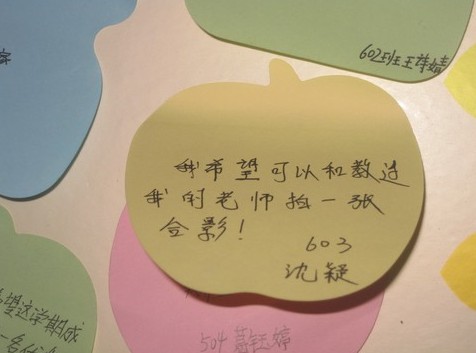 602班王梓婧
我希望可以和教过
我的老师拍一张
合影!
603
沈疑
望这学期成
504葛钰婷